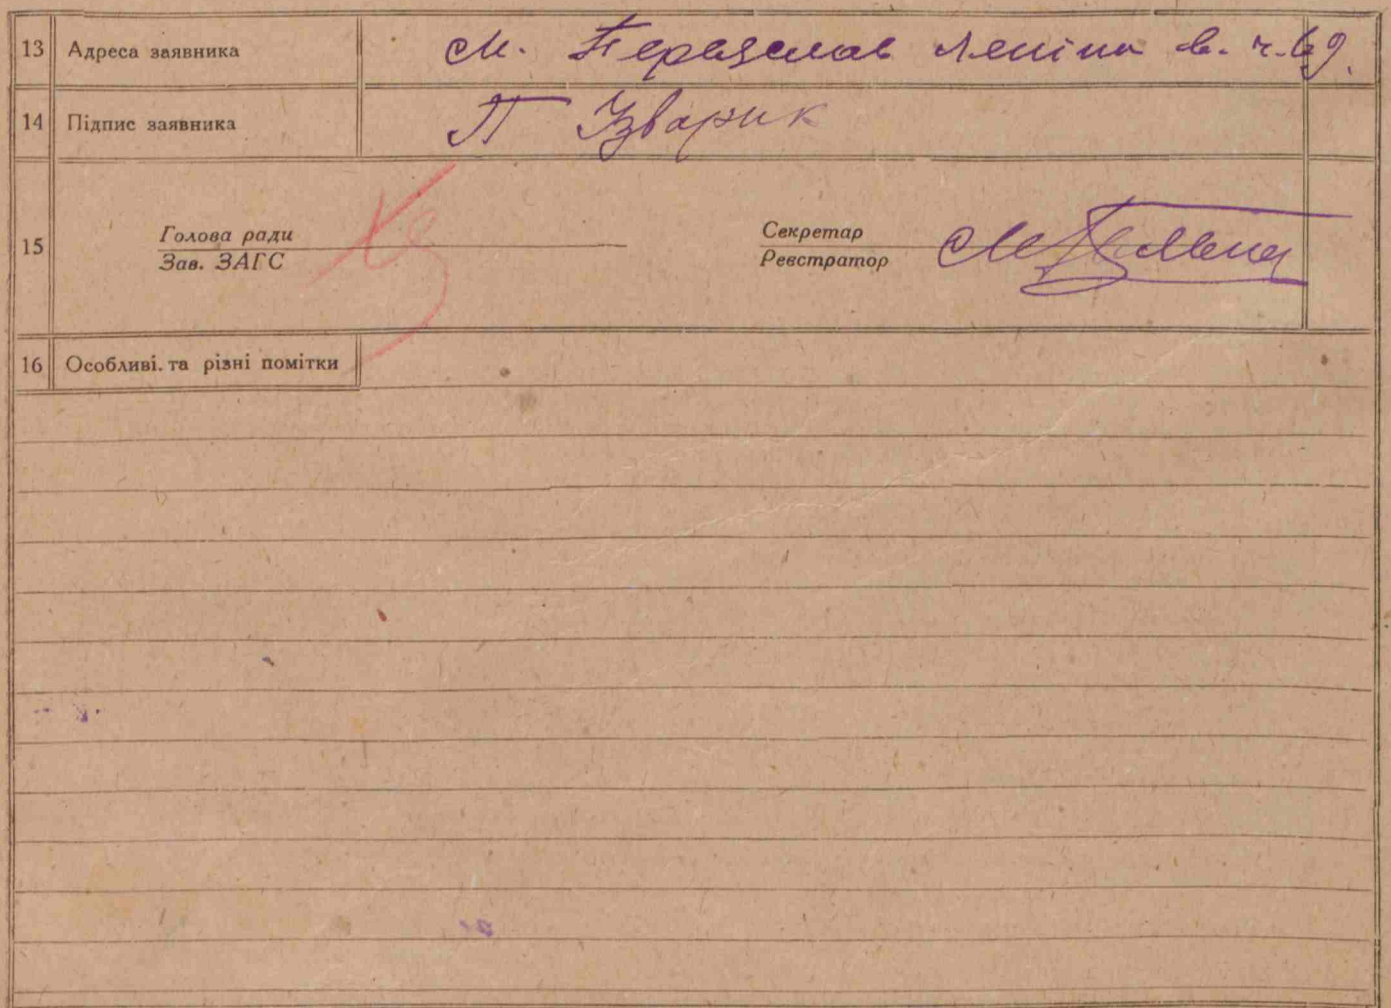 13 Адреса заявника м. Переяслав Леніна в. ч. 69.
14 Підпис заявника П Зварик
15 Голова ради Секретар
Зав. ЗАГС Реєстратор
16 Особливі. та різні помітки